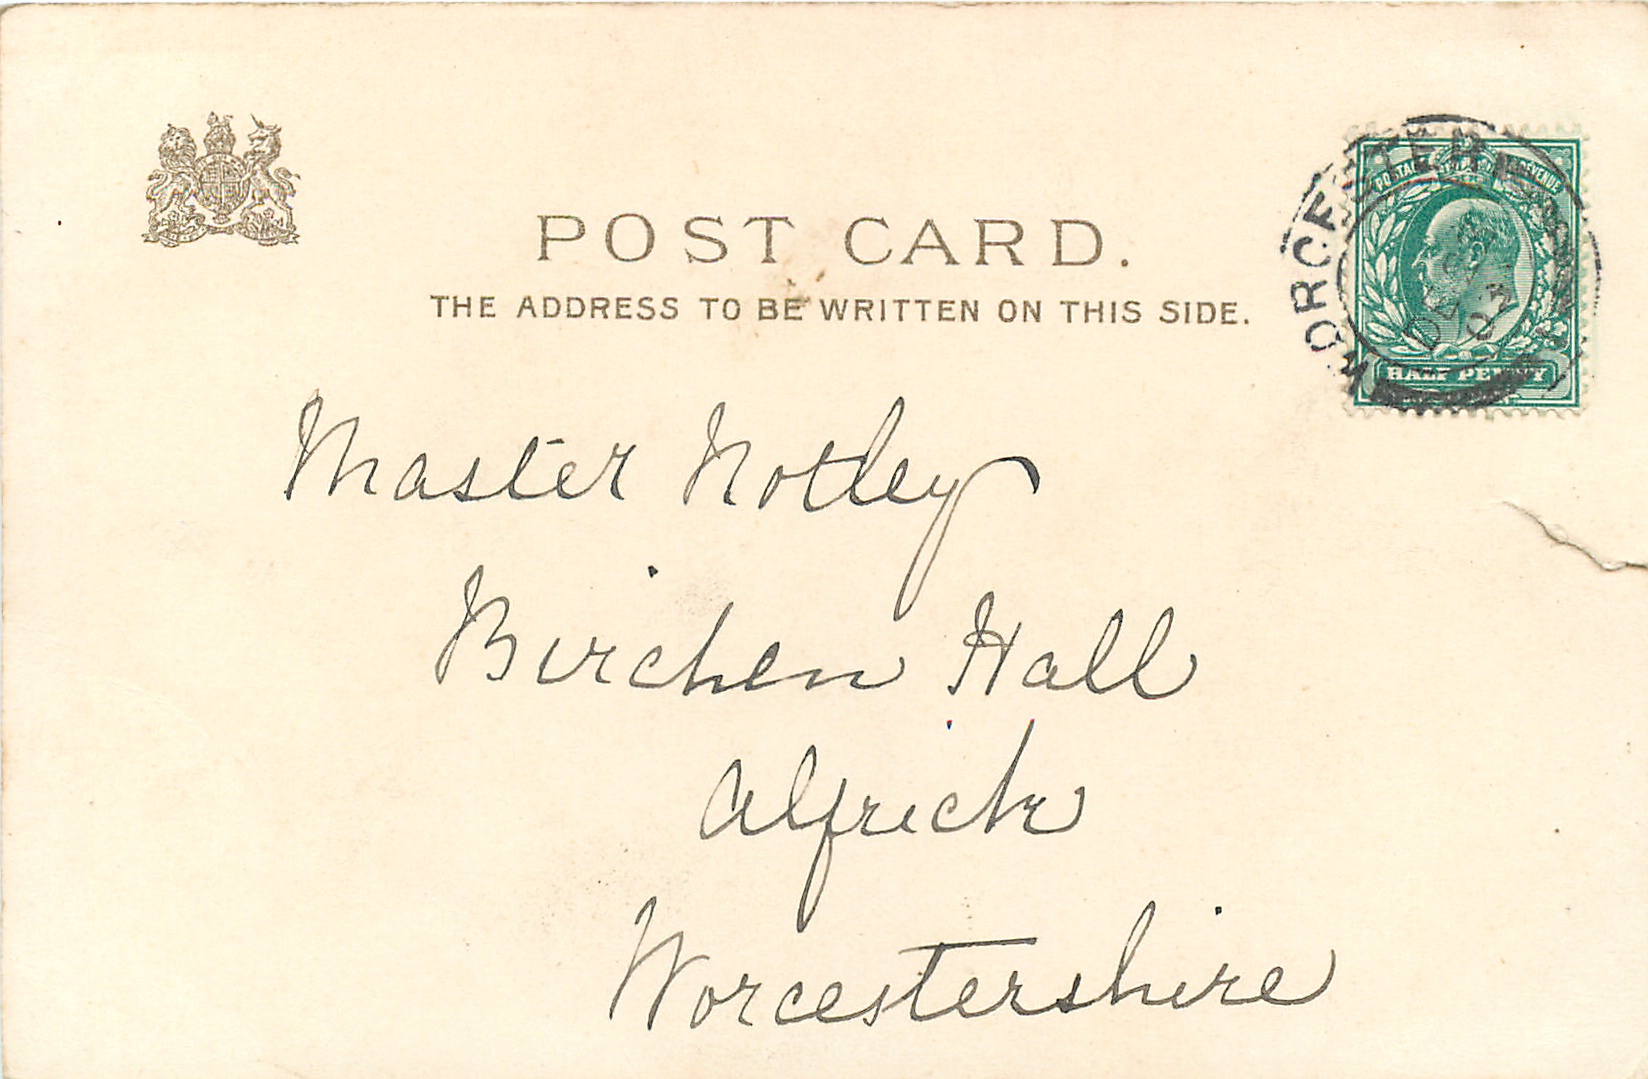 POST CARD.
THE ADDRESS TO BE WRITTEN ON THIS SIDE.
WORCESTER
POSTAGE REVENUE
DE
02
HALF PENNY
Master Notley
Birchen Hall
Alfrick
Worcestershire